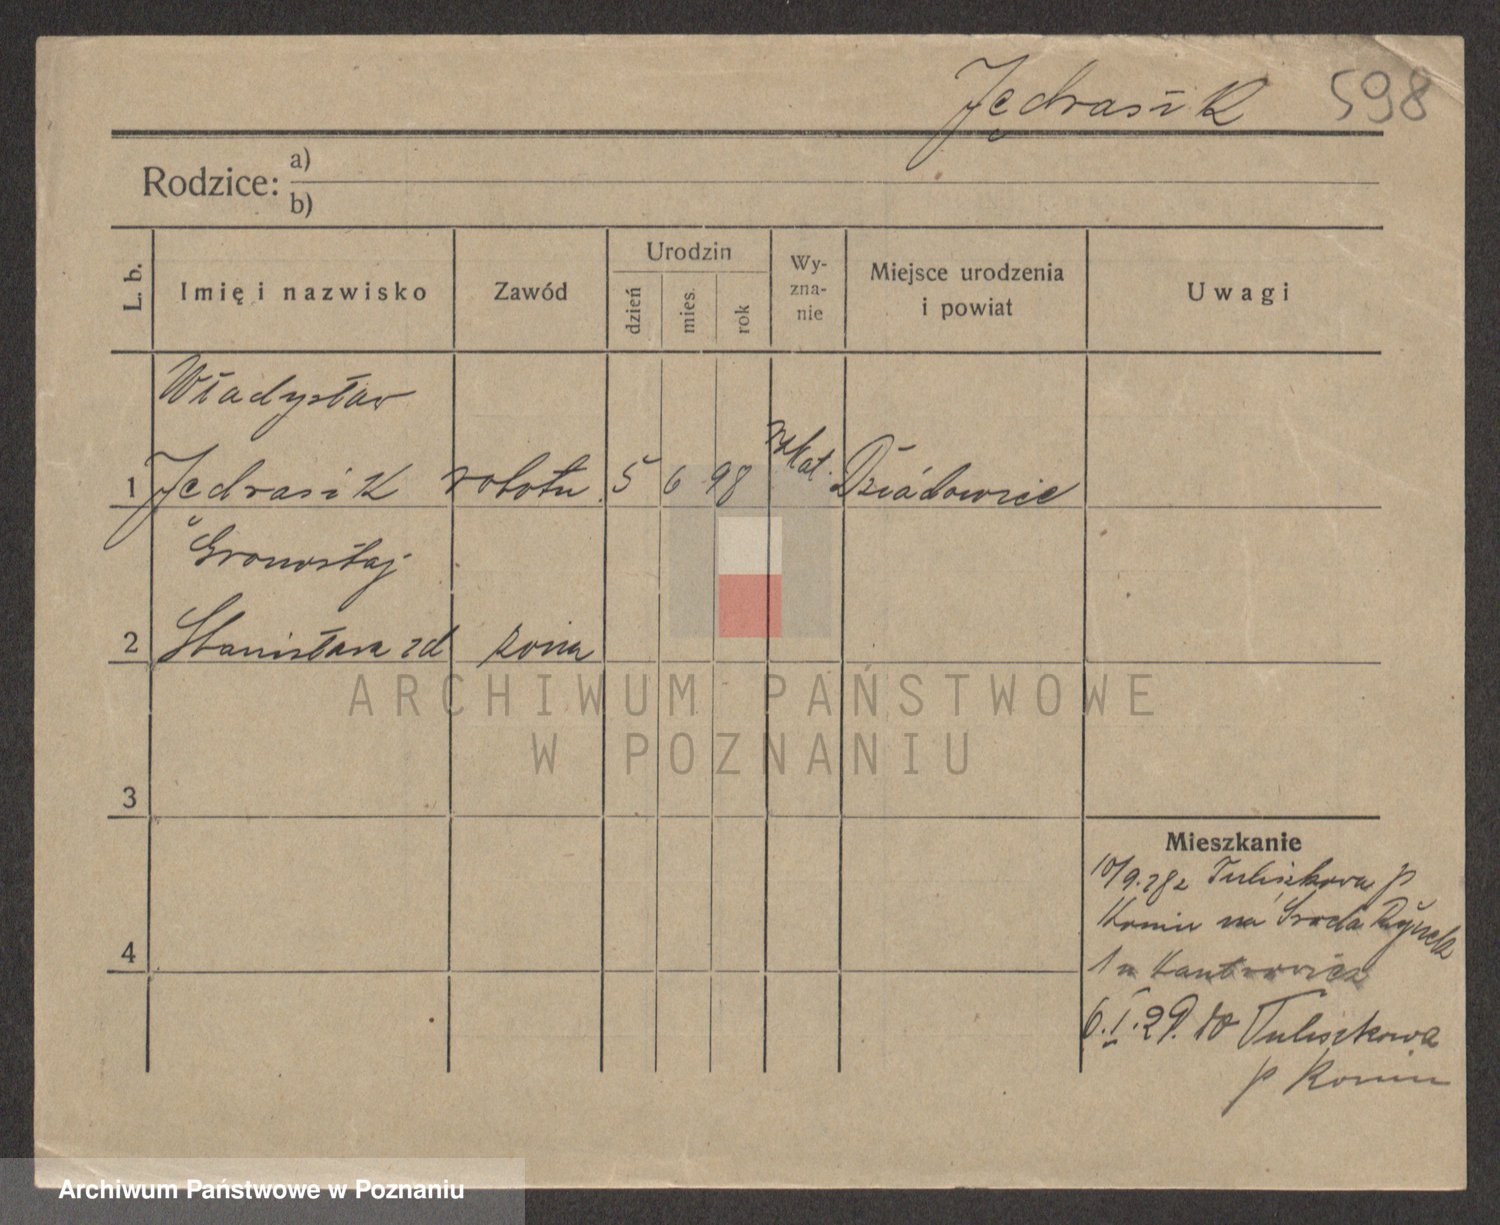 Jędrasik 598
Rodzice: a)
b)
L. b. Imię i nazwisko Zawód Urodzin dzień mies. rok Wy-zna-nie Miejsce urodzenia i powiat Uwagi
Władysław
1 Jędrasik robotn. 5 6 98 rz kat. Dziadowice
Gronostaj
2 Stanisława zd żona
ARCHIWUM PAŃSTWOWE
W POZNANIU
3
Mieszkanie
10/9.28 z Tuliszkowa p
Konin na Środa Rynek
4
1 u Kantrowicz
6.I.29. do Tuliszkowa
p Konin
Archiwum Państwowe w Poznaniu